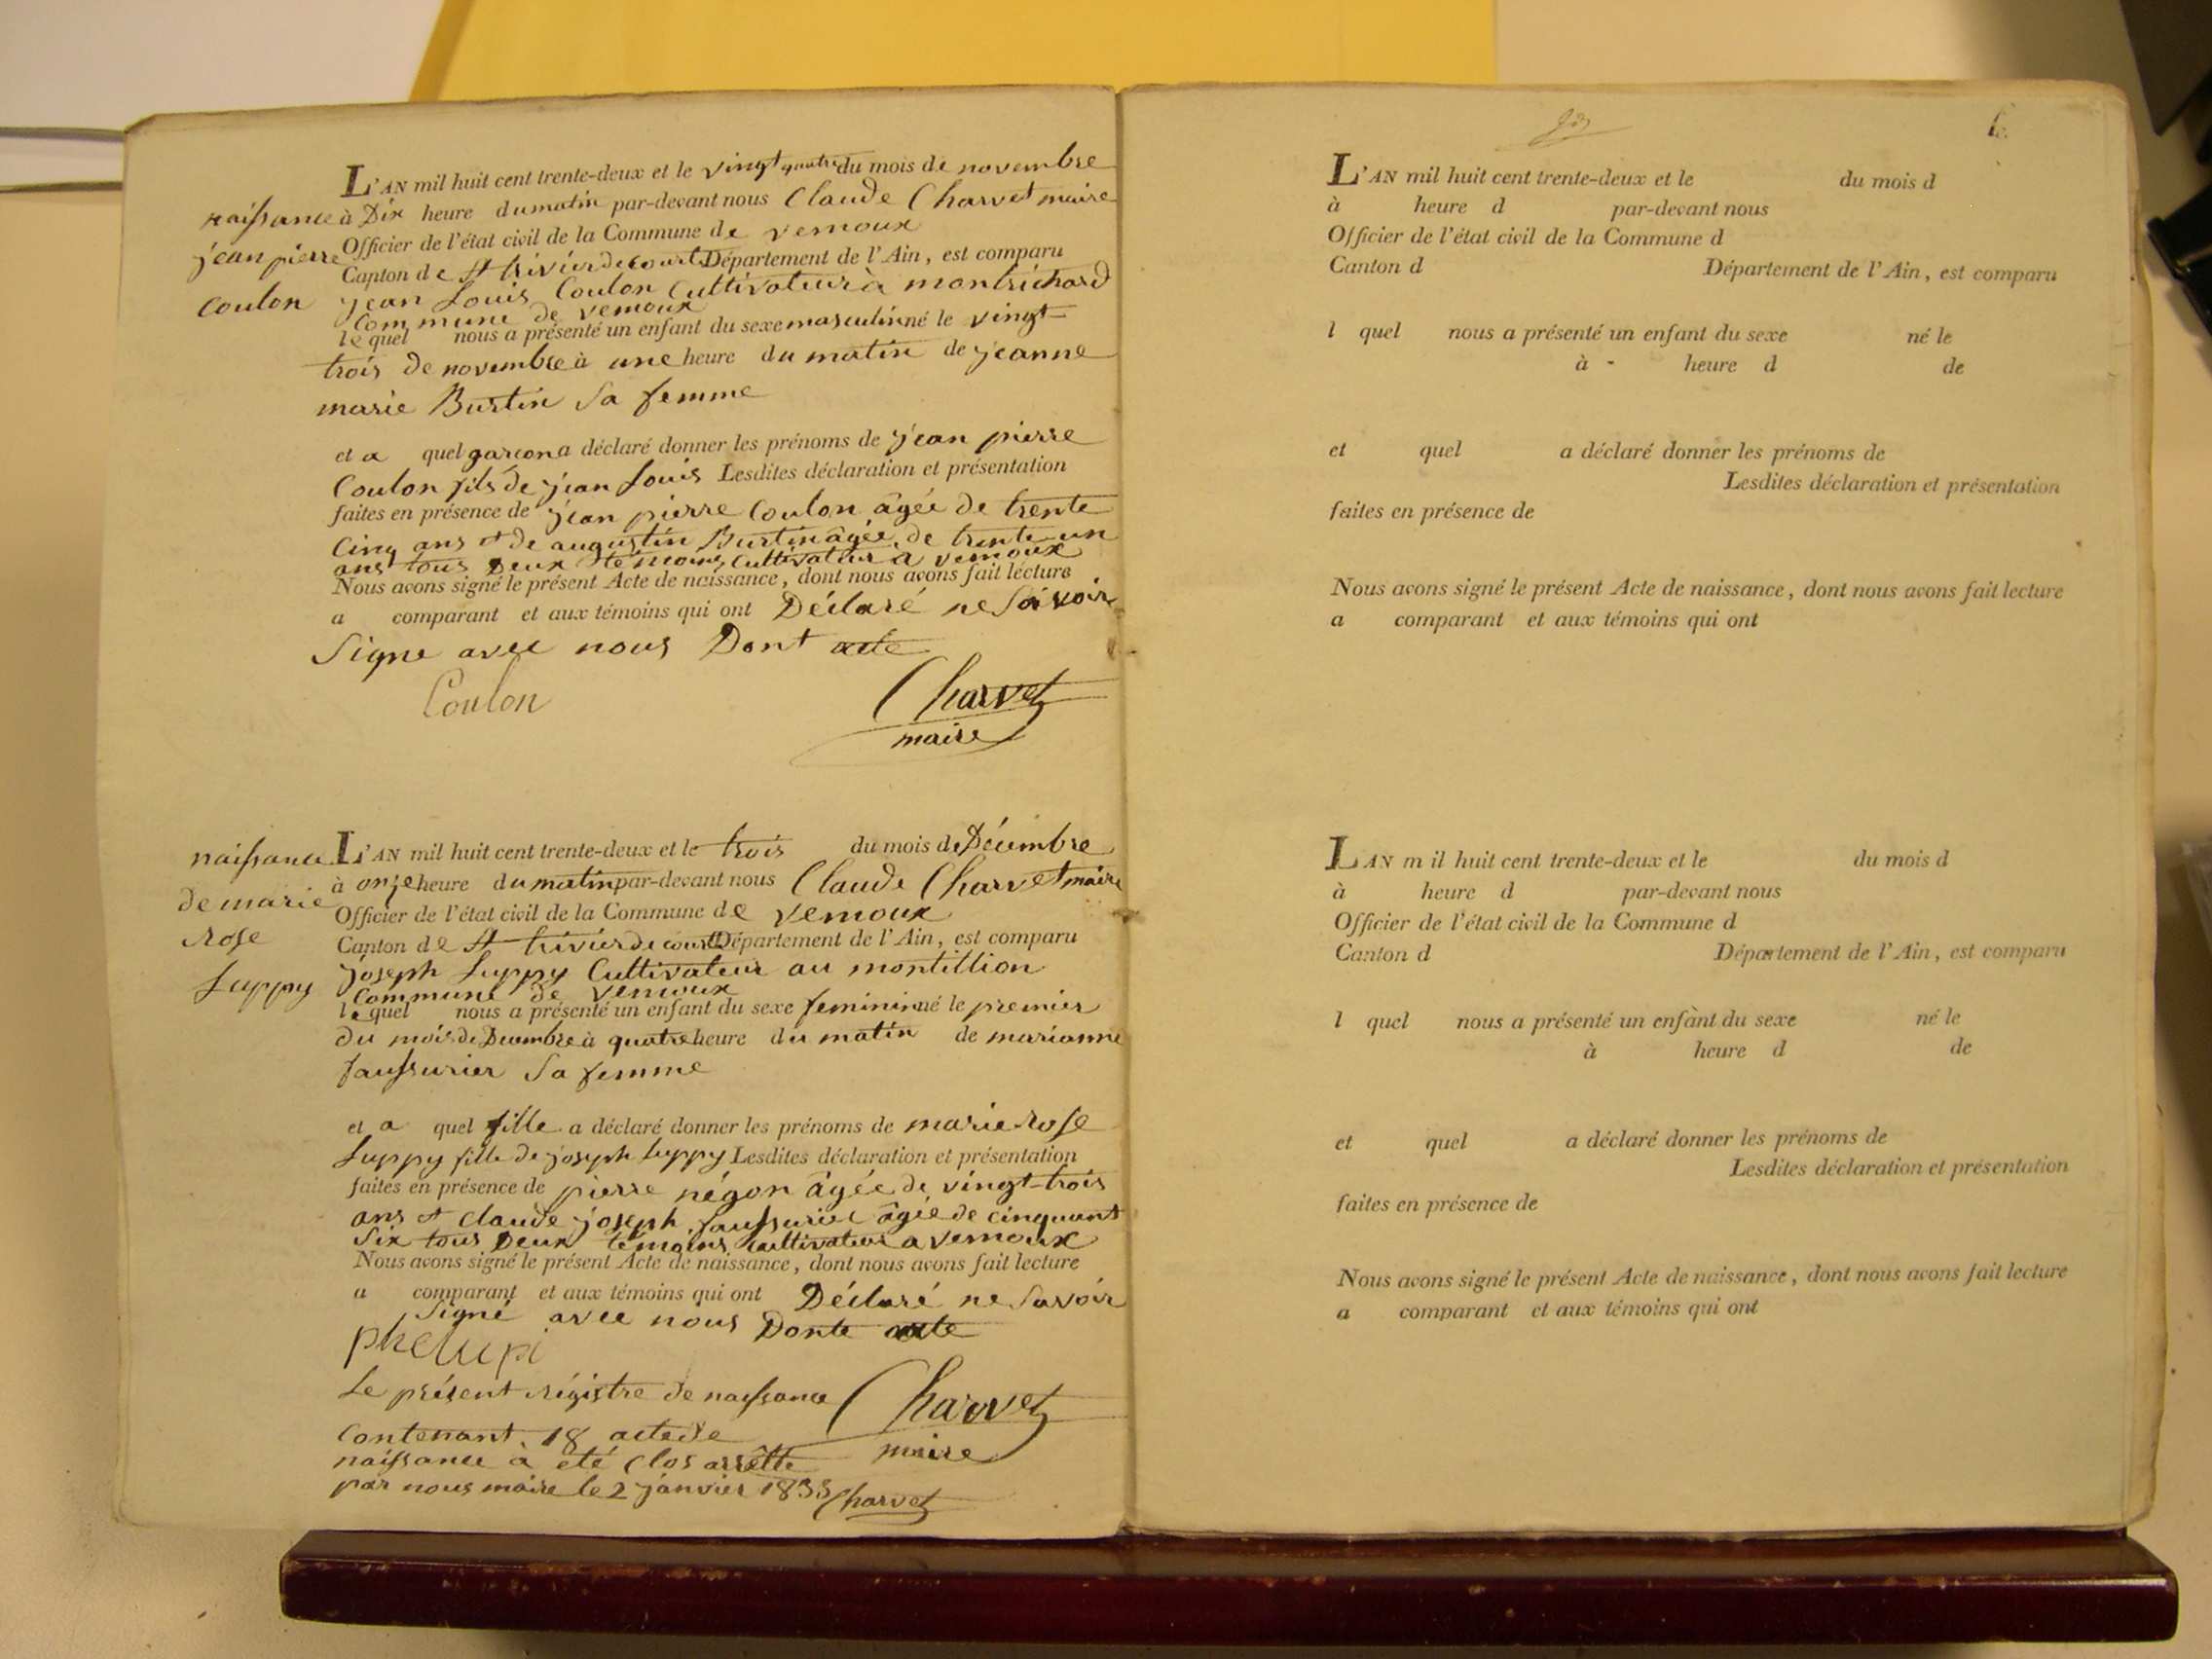 L'AN mil huit cent trente-deux et le vingt quatre du mois de novembre
naissance à Dix heure du matin par-devant nous Claude Charvet maire
Officier de l'état civil de la Commune de vernoux
jean pierre
Canton de St trivier de courtes Département de l'Ain, est comparu
coulon
jean Louis Coulon Cultivateur à montrichard
Commune de vernoux
lequel nous a présenté un enfant du sexe masculin né le vingt
trois de novembre à une heure du matin de jeanne
marie Burtin Sa femme
et a quel garcon a déclaré donner les prénoms de jean pierre
Coulon fils de jean Louis Lesdites déclaration et présentation
faites en présence de jean pierre Coulon âgée de trente
Cinq ans et de augustin Burtin âgée de trente un
ans tous Deux témoins Cultivateur a vernoux
Nous avons signé le présent Acte de naissance, dont nous avons fait lecture
a comparant et aux témoins qui ont Déclaré ne Savoir
Signe avec nous Dont acte
Coulon
Charvet
maire
naissance
de marie
Rose
Luppy
L'AN mil huit cent trente-deux et le trois du mois de Décembre
à onze heure du matin par-devant nous Claude Charvet maire
Officier de l'état civil de la Commune de vernoux
Canton de St trivier de courtes Département de l'Ain, est comparu
joseph Luppy Cultivateur au montillion
Commune de vernoux
lequel nous a présenté un enfant du sexe feminin né le premier
du mois de Decembre à quatre heure du matin de marianne
faussurier Sa femme
et a quel fille a déclaré donner les prénoms de marie Rose
Luppy fille de joseph Luppy Lesdites déclaration et présentation
faites en présence de pierre négon âgée de vingt-trois
ans et Claude joseph faussurier âgée de cinquant
Six tous Deux témoins Cultivateur a vernoux
Nous avons signé le présent Acte de naissance, dont nous avons fait lecture
a comparant et aux témoins qui ont Déclaré ne Savoir
Signé avec nous Donte acte
Le présent régistre de naissance
Contenant 18 acte de
naissance à été Clos arrêtte
par nous maire le 2 janvier 1833 Charvet
Charvet
maire
L'AN mil huit cent trente-deux et le du mois d
à heure d par-devant nous
Officier de l'état civil de la Commune d
Canton d Département de l'Ain, est comparu
l quel nous a présenté un enfant du sexe né le
à heure d de
et quel a déclaré donner les prénoms de
Lesdites déclaration et présentation
faites en présence de
Nous avons signé le présent Acte de naissance, dont nous avons fait lecture
a comparant et aux témoins qui ont
L AN m il huit cent trente-deux et le du mois d
à heure d par-devant nous
Officier de l'état civil de la Commune d
Canton d Département de l'Ain, est comparu
l quel nous a présenté un enfant du sexe né le
à heure d de
et quel a déclaré donner les prénoms de
Lesdites déclaration et présentation
faites en présence de
Nous avons signé le présent Acte de naissance, dont nous avons fait lecture
a comparant et aux témoins qui ont